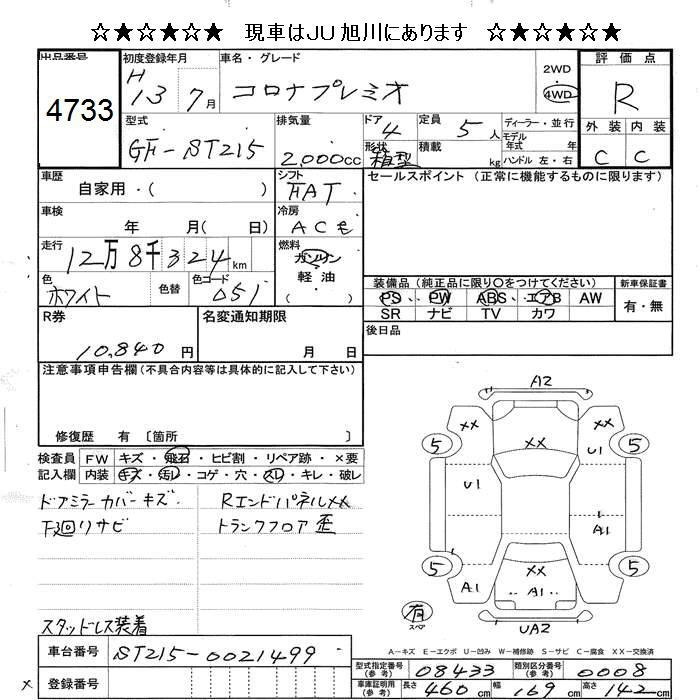 ☆★☆★☆★ 現車はJU旭川にあります ☆★☆★☆★
出品番号
4733
初度登録年月
H13 7月
車名・グレード
コロナプレミオ
2WD
4WD
評価点
R
外装 内装
C C
型式
GF-ST215
排気量
2,000cc
ドア
4
形状
箱型
定員
5人
積載
kg
ディーラー・並行
モデル
年式 年
ハンドル 左・右
車歴
自家用・( )
シフト
FAT
セールスポイント (正常に機能するものに限ります)
車検
年 月( 日)
冷房
ACモ
走行
12万8千324km
燃料
ガソリン
軽油
( )
色
ホワイト
色替
色コード
051
装備品 (純正品に限り○をつけてください)
PS・PW ABS・エアB AW
SR ナビ TV カワ
新車保証書
有・無
R券
10,840円
名変通知期限
月 日
後日品
注意事項申告欄(不具合内容等は具体的に記入して下さい)
修復歴 有 〔箇所 〕
検査員
記入欄
FW キズ・飛石・ヒビ割・リペア跡・×要
内装 キズ・汚レ・コゲ・穴・スレ・キレ・破レ
ドアミラーカバーキズ
下廻リサビ
スタッドレス装着
RエンドパネルXX
トランクフロア歪
A2
5
XX
U1
5
U1
A1
5
XX
A1
A1
5
有
スペア
UA2
A-キズ E-エクボ U-凹み W-補修跡 S-サビ C-腐食 XX-交換済
車台番号
ST215-0021499
登録番号
型式指定番号
(参考)
08433
類別区分番号
(参考)
0008
車庫証明用
(参考)
長さ 460cm
幅 169cm
高さ 142cm
×